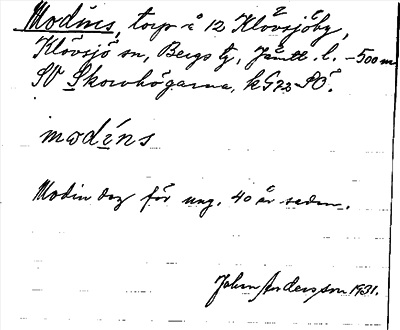 Modins, torp å 12 Klövsjöby,
Klövsjö sn, Bergs tg, Jämtl. l. -500 m
SV Skorvhögarna, kG72-SÖ.
modíns
Modin dog för ung. 40 år sedan.
John Andersson 1931.